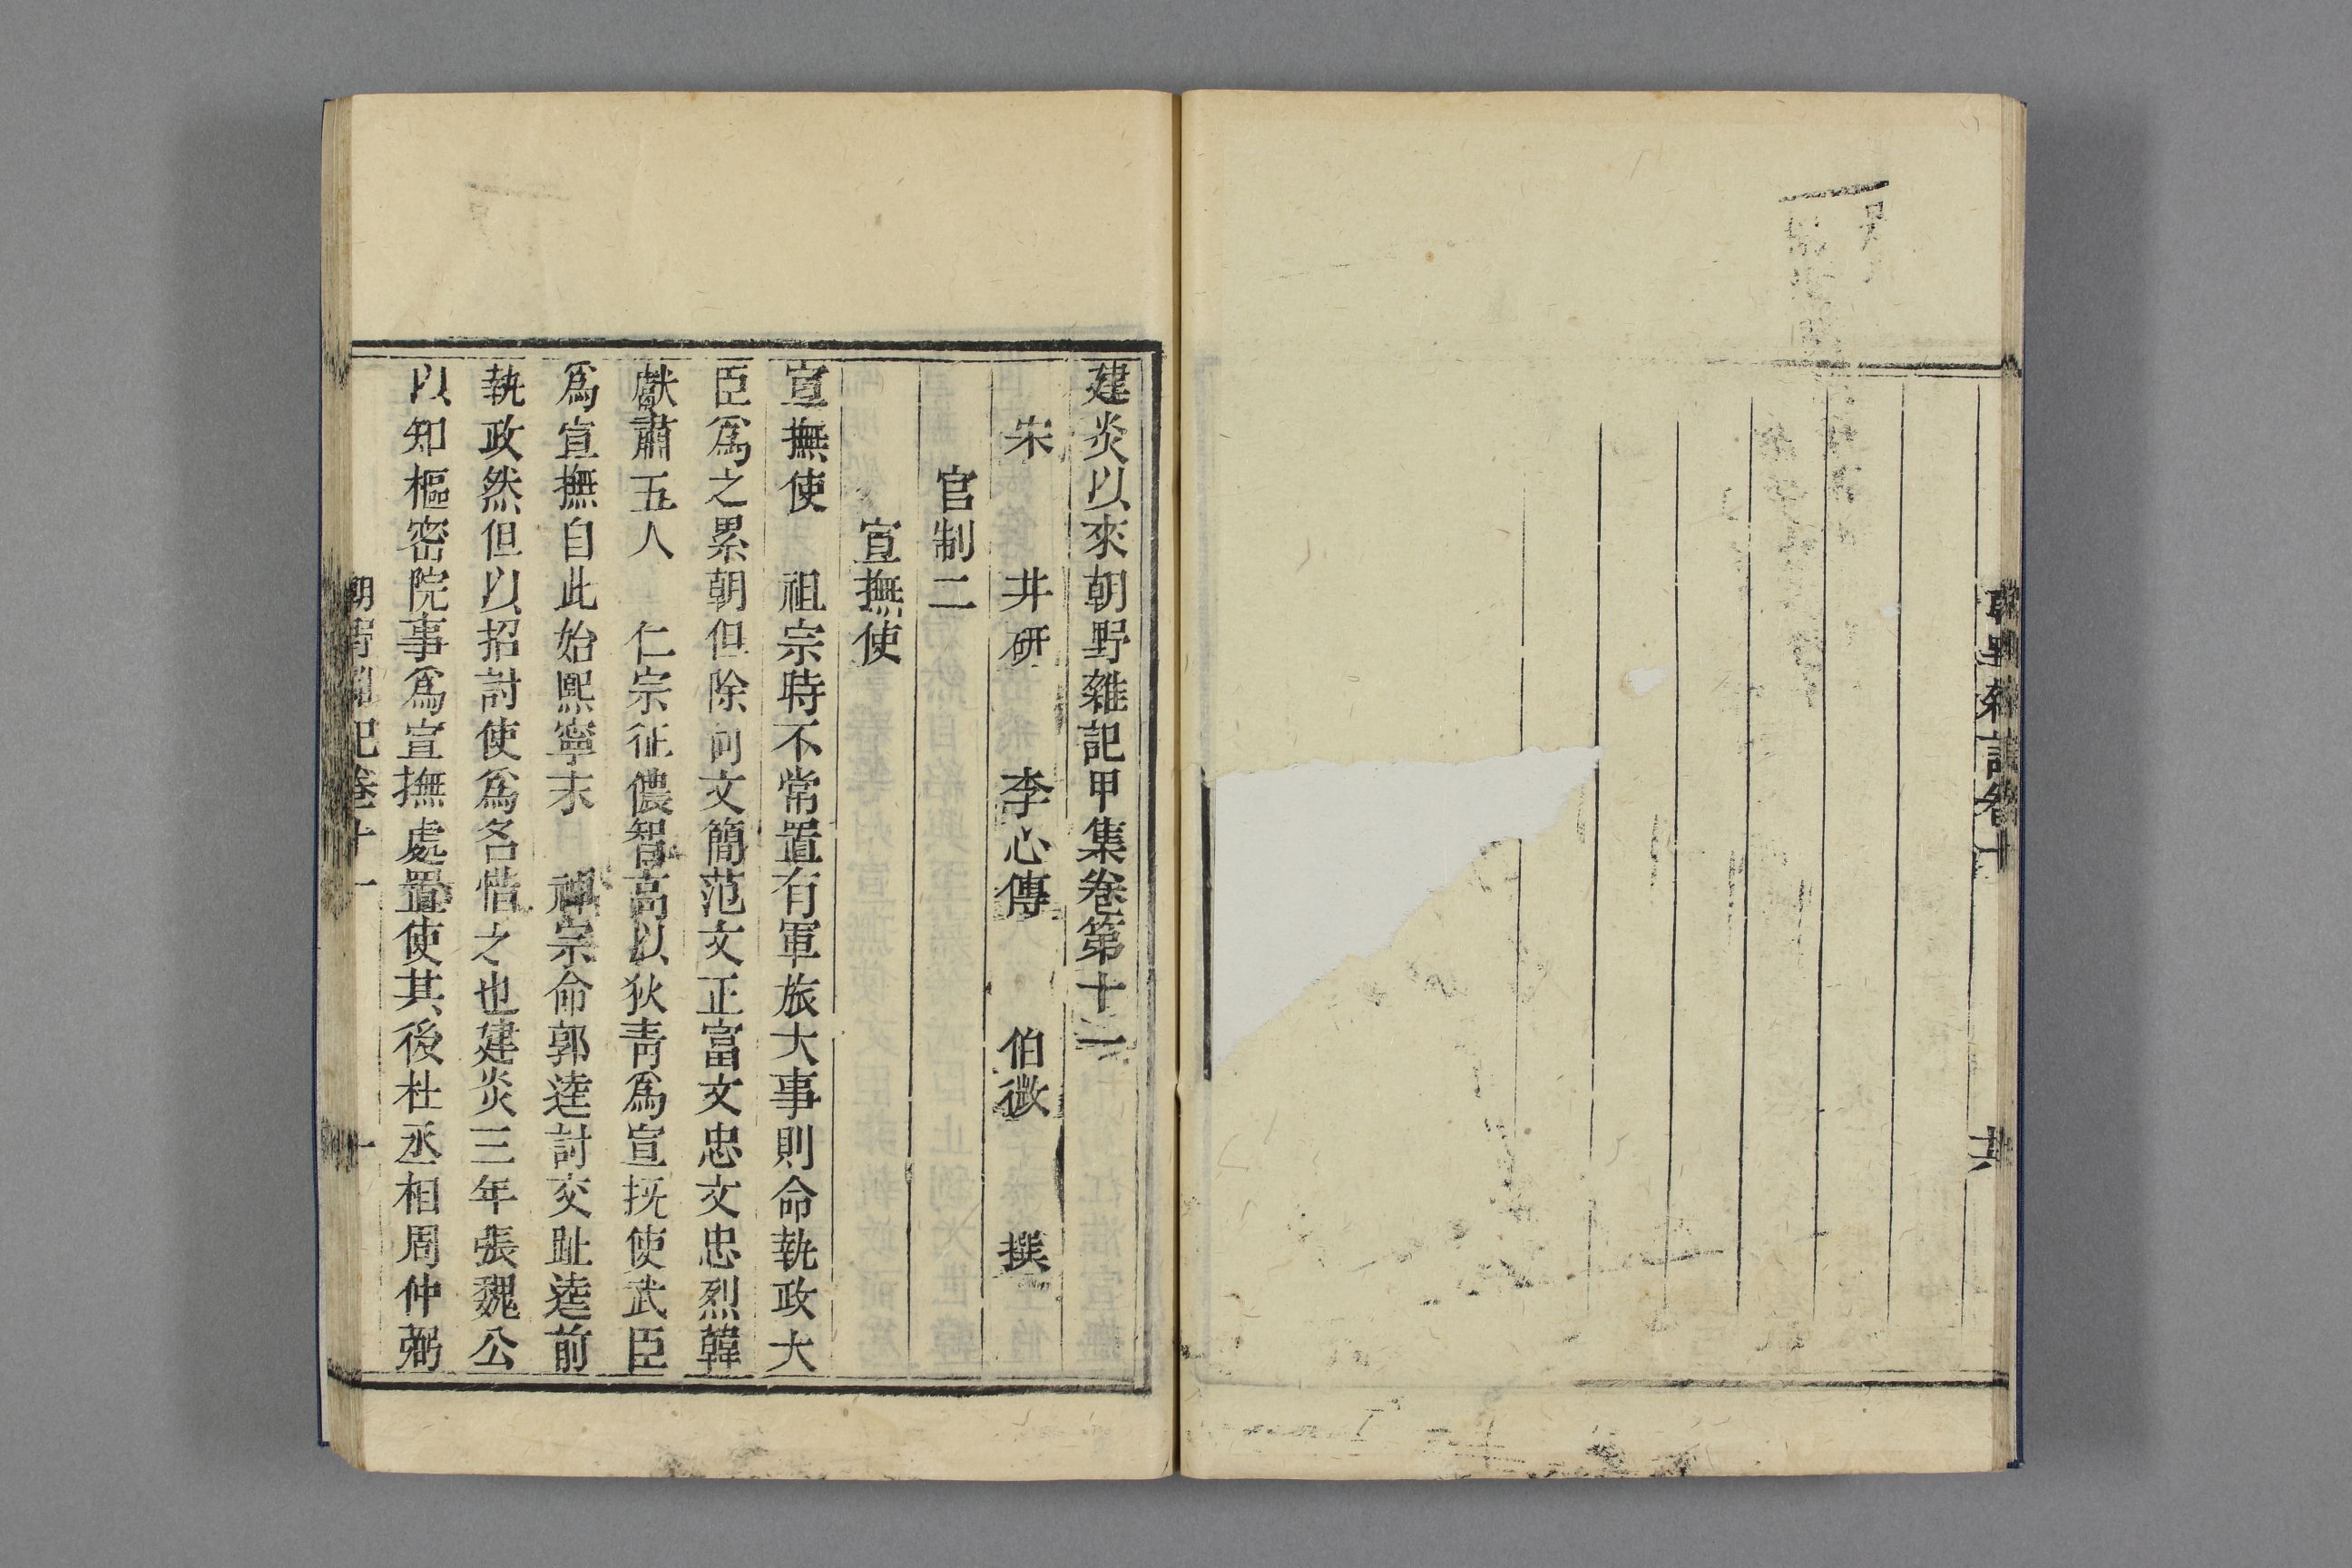 建炎以來朝野雜記甲集卷第十一
宋　井研　李心傳　伯微　撰
官制二
宣撫使
宣撫使　祖宗時不常置有軍旅大事則命執政大
臣爲之累朝但除向文簡范文正富文忠文忠烈韓
獻肅五人　仁宗征儂智高以狄青爲宣抚使武臣
爲宣撫自此始熙寧末　神宗命郭逵討交趾逵前
執政然但以招討使爲名惜之也建炎三年張魏公
以知樞密院事爲宣撫處置使其後杜丞相周仲弼
卷十一　一